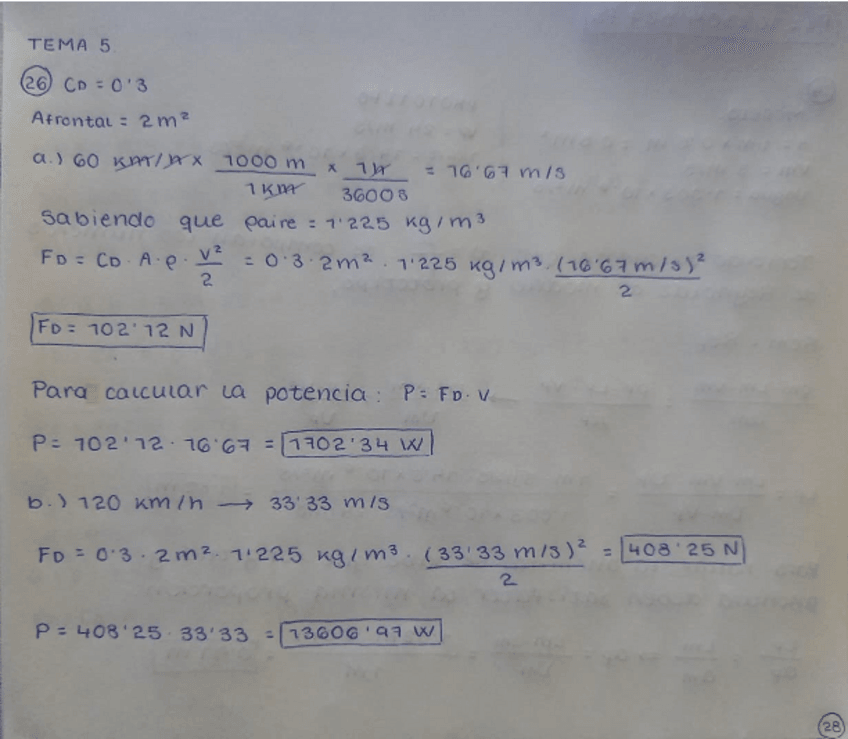 TEMA 5
26 CD = 0'3
Afrontal = 2m²
a.) 60 km/h x 1000 m / 1 km x 1h / 3600s = 16'67 m/s
Sabiendo que ρaire = 1'225 kg/m³
FD = CD · A · ρ · V²/2 = 0'3 · 2m² · 1'225 kg/m³ · (16'67 m/s)²/2
FD = 102'12 N
Para calcular la potencia: P = FD · V
P = 102'12 · 16'67 = 1702'34 W
b.) 120 km/h → 33'33 m/s
FD = 0'3 · 2m² · 1'225 kg/m³ · (33'33 m/s)²/2 = 408'25 N
P = 408'25 · 33'33 = 13606'97 W
28